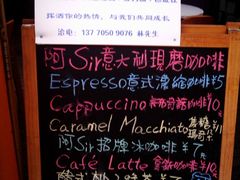 挥洒你的热情,与我们共同成长
洽电: 137 7050 9076 林先生
阿Sir意大利現磨咖啡
Espresso意式濃縮咖啡¥5
Cappuccino 咖啡¥10元
Caramel Macchiato 焦糖瑪奇朵
阿Sir招牌冰咖啡¥7元
Café Latte 拿鐵咖啡¥10元